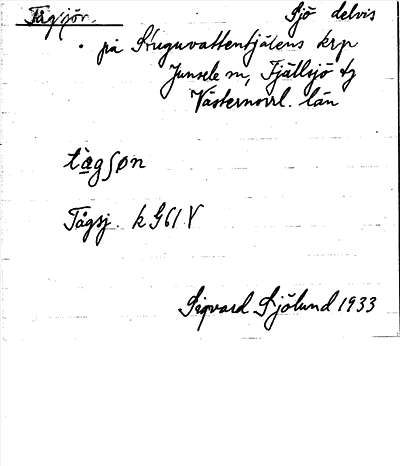 Tågsjön. Sjö delvis
på Stuguvattentjälens krp
Junsele sn, Fjällsjö tg
Västernorrl. län
tàgʃøn
Tågsj. k G61 V
Sigvard Sjölund 1933